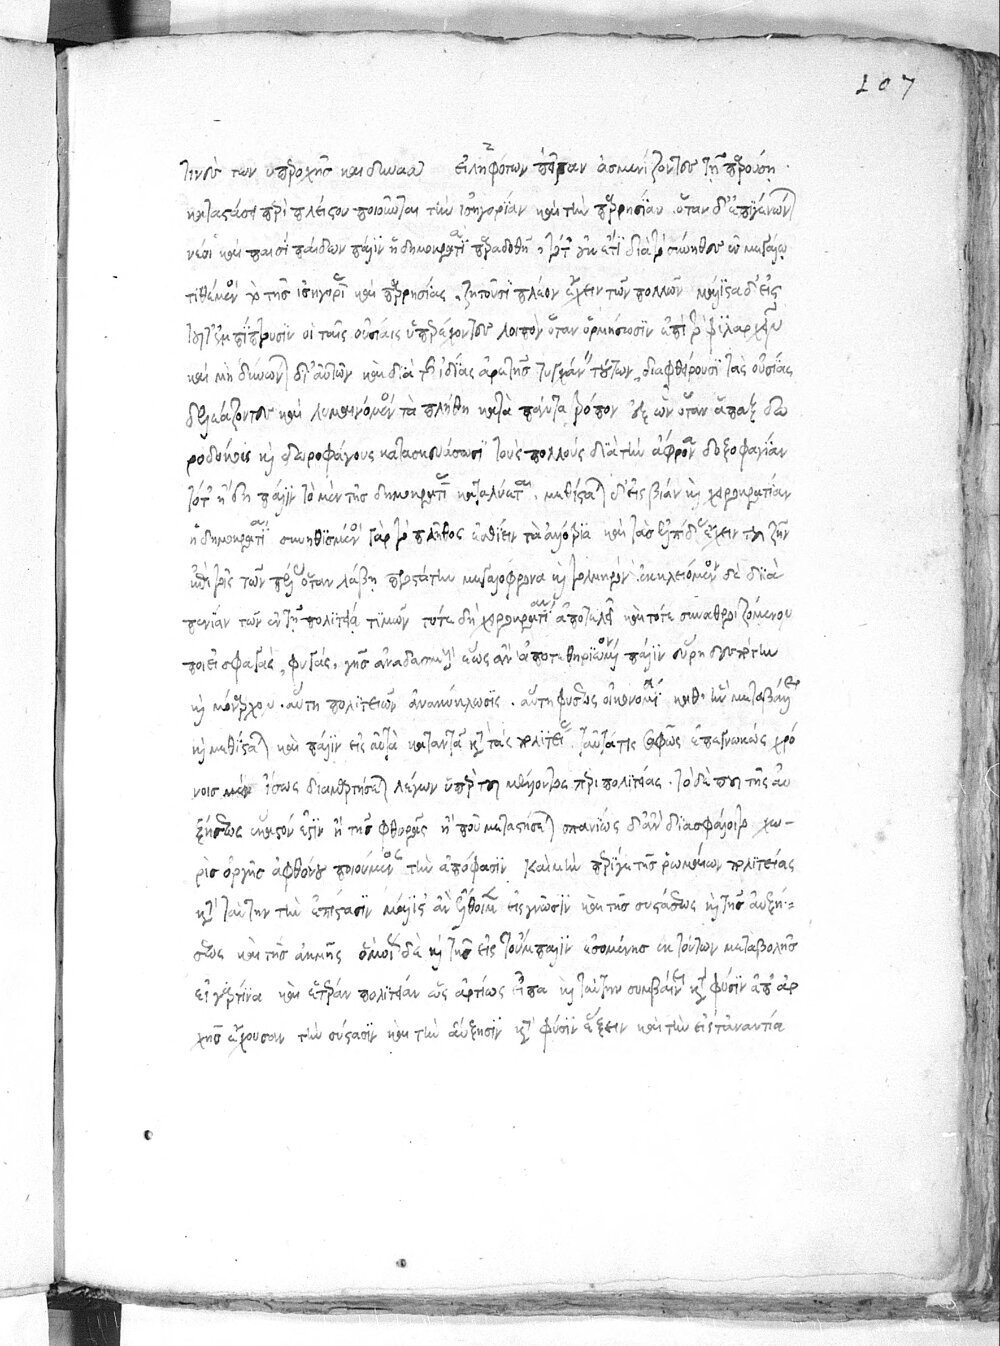 τινὲς τῶν ὑπεροχῆς καὶ δυνα εἰληφότων πεῖραν ἀσμενίζοντες τῇ παρούσῃ
καταστάσει περὶ πλείστου ποιοῦνται τὴν ἰσηγορίαν καὶ τὴν παρρησίαν. ὅταν δ' ἐπιγένωνται
νέοι καὶ παισὶ παίδων πάλιν ἡ δημοκρατία παραδοθῇ, τότ' οὐκ ἔτι διὰ τὸ σύνηθες ἐν μεγάλῳ
τιθέμενοι τὸ τῆς ἰσηγορίας καὶ παρρησίας, ζητοῦσι πλέον ἔχειν τῶν πολλῶν μάλιστα δ' εἰς
τοῦτ' ἐμπίπτουσιν οἱ ταῖς οὐσίαις ὑπερέχοντες λοιπὸν ὅταν ὁρμήσωσιν ἐπὶ τὸ φιλαρχεῖν
καὶ μὴ δύνωνται δι' αὐτῶν καὶ διὰ τῆς ἰδίας ἀρετῆς τυγχάνειν τούτων, διαφθείρουσι τὰς οὐσίας
δελεάζοντες καὶ λυμαινόμενοι τὰ πλήθη κατὰ πάντα τρόπον ἐξ ὧν ὅταν ἅπαξ δω
ροδόκους καὶ δωροφάγους κατασκευάσωσι τοὺς πολλοὺς διὰ τὴν ἄφρονα δοξοφαγίαν
τότ' ἤδη πάλιν τὸ μὲν τῆς δημοκρατίας καταλύεται. μεθίσταται δ' εἰς βίαν καὶ χειροκρατίαν
ἡ δημοκρατία συνηθισμένον γὰρ τὸ πλῆθος ἐσθίειν τὰ ἀλλότρια καὶ τὰς ἐλπίδας ἔχειν τοῦ ζῆν
ἐπὶ τοῖς τῶν πέλας ὅταν λάβῃ προστάτην μεγαλόφρονα καὶ τολμηρόν. ἐκκλειόμενον δὲ διὰ
πενίαν τῶν ἐν τῇ πολιτείᾳ τιμίων τότε δὴ χειροκρατίαν ἀποτελεῖ καὶ τότε συναθροιζόμενον
ποιεῖ σφαγάς, φυγάς, γῆς ἀναδασμούς ἕως ἂν ἀποτεθηριωμένον πάλιν εὕρῃ δεσπότην
καὶ μόναρχον. αὕτη πολιτειῶν ἀνακύκλωσις. αὕτη φύσεως οἰκονομία καθ' ἣν μεταβάλλει
καὶ μεθίσταται καὶ πάλιν εἰς αὑτὰ καταντᾷ κατὰ τὰς πολιτείας. ταῦτά τις σαφῶς ἐπεγνωκὼς χρό
νοις μὲν ἴσως διαμαρτήσεται λέγων ὑπὲρ τοῦ μέλλοντος περὶ πολιτείας. τὸ δὲ ποῦ τῆς αὐ
ξήσεως ἕκαστόν ἐστιν ἢ τῆς φθορᾶς ἢ ποῦ μεταστήσεται σπανίως δ' ἂν διασφάλοιτο χω-
ρὶς ὀργῆς ἢ φθόνου ποιούμενος τὴν ἀπόφασιν καὶ μὴν περί γε τῆς ῥωμαίων πολιτείας
κατὰ ταύτην τὴν ἐπίστασιν μάλιστ' ἂν ἔλθοιμεν εἰς γνῶσιν καὶ τῆς συστάσεως καὶ τῆς αὐξή-
σεως καὶ τῆς ἀκμῆς ὁμοίως δὲ καὶ τῆς εἰς τοὔμπαλιν ἐσομένης ἐκ τούτων μεταβολῆς
εἰ γάρ τινα καὶ ἑτέραν πολιτείαν ὡς ἀρτίως εἶπα καὶ ταύτην συμβαίνει κατὰ φύσιν ἀπ' ἀρ
χῆς ἔχουσαν τὴν σύστασιν καὶ τὴν αὔξησιν κατὰ φύσιν ἕξειν καὶ τὴν εἰς τἀναντία
107